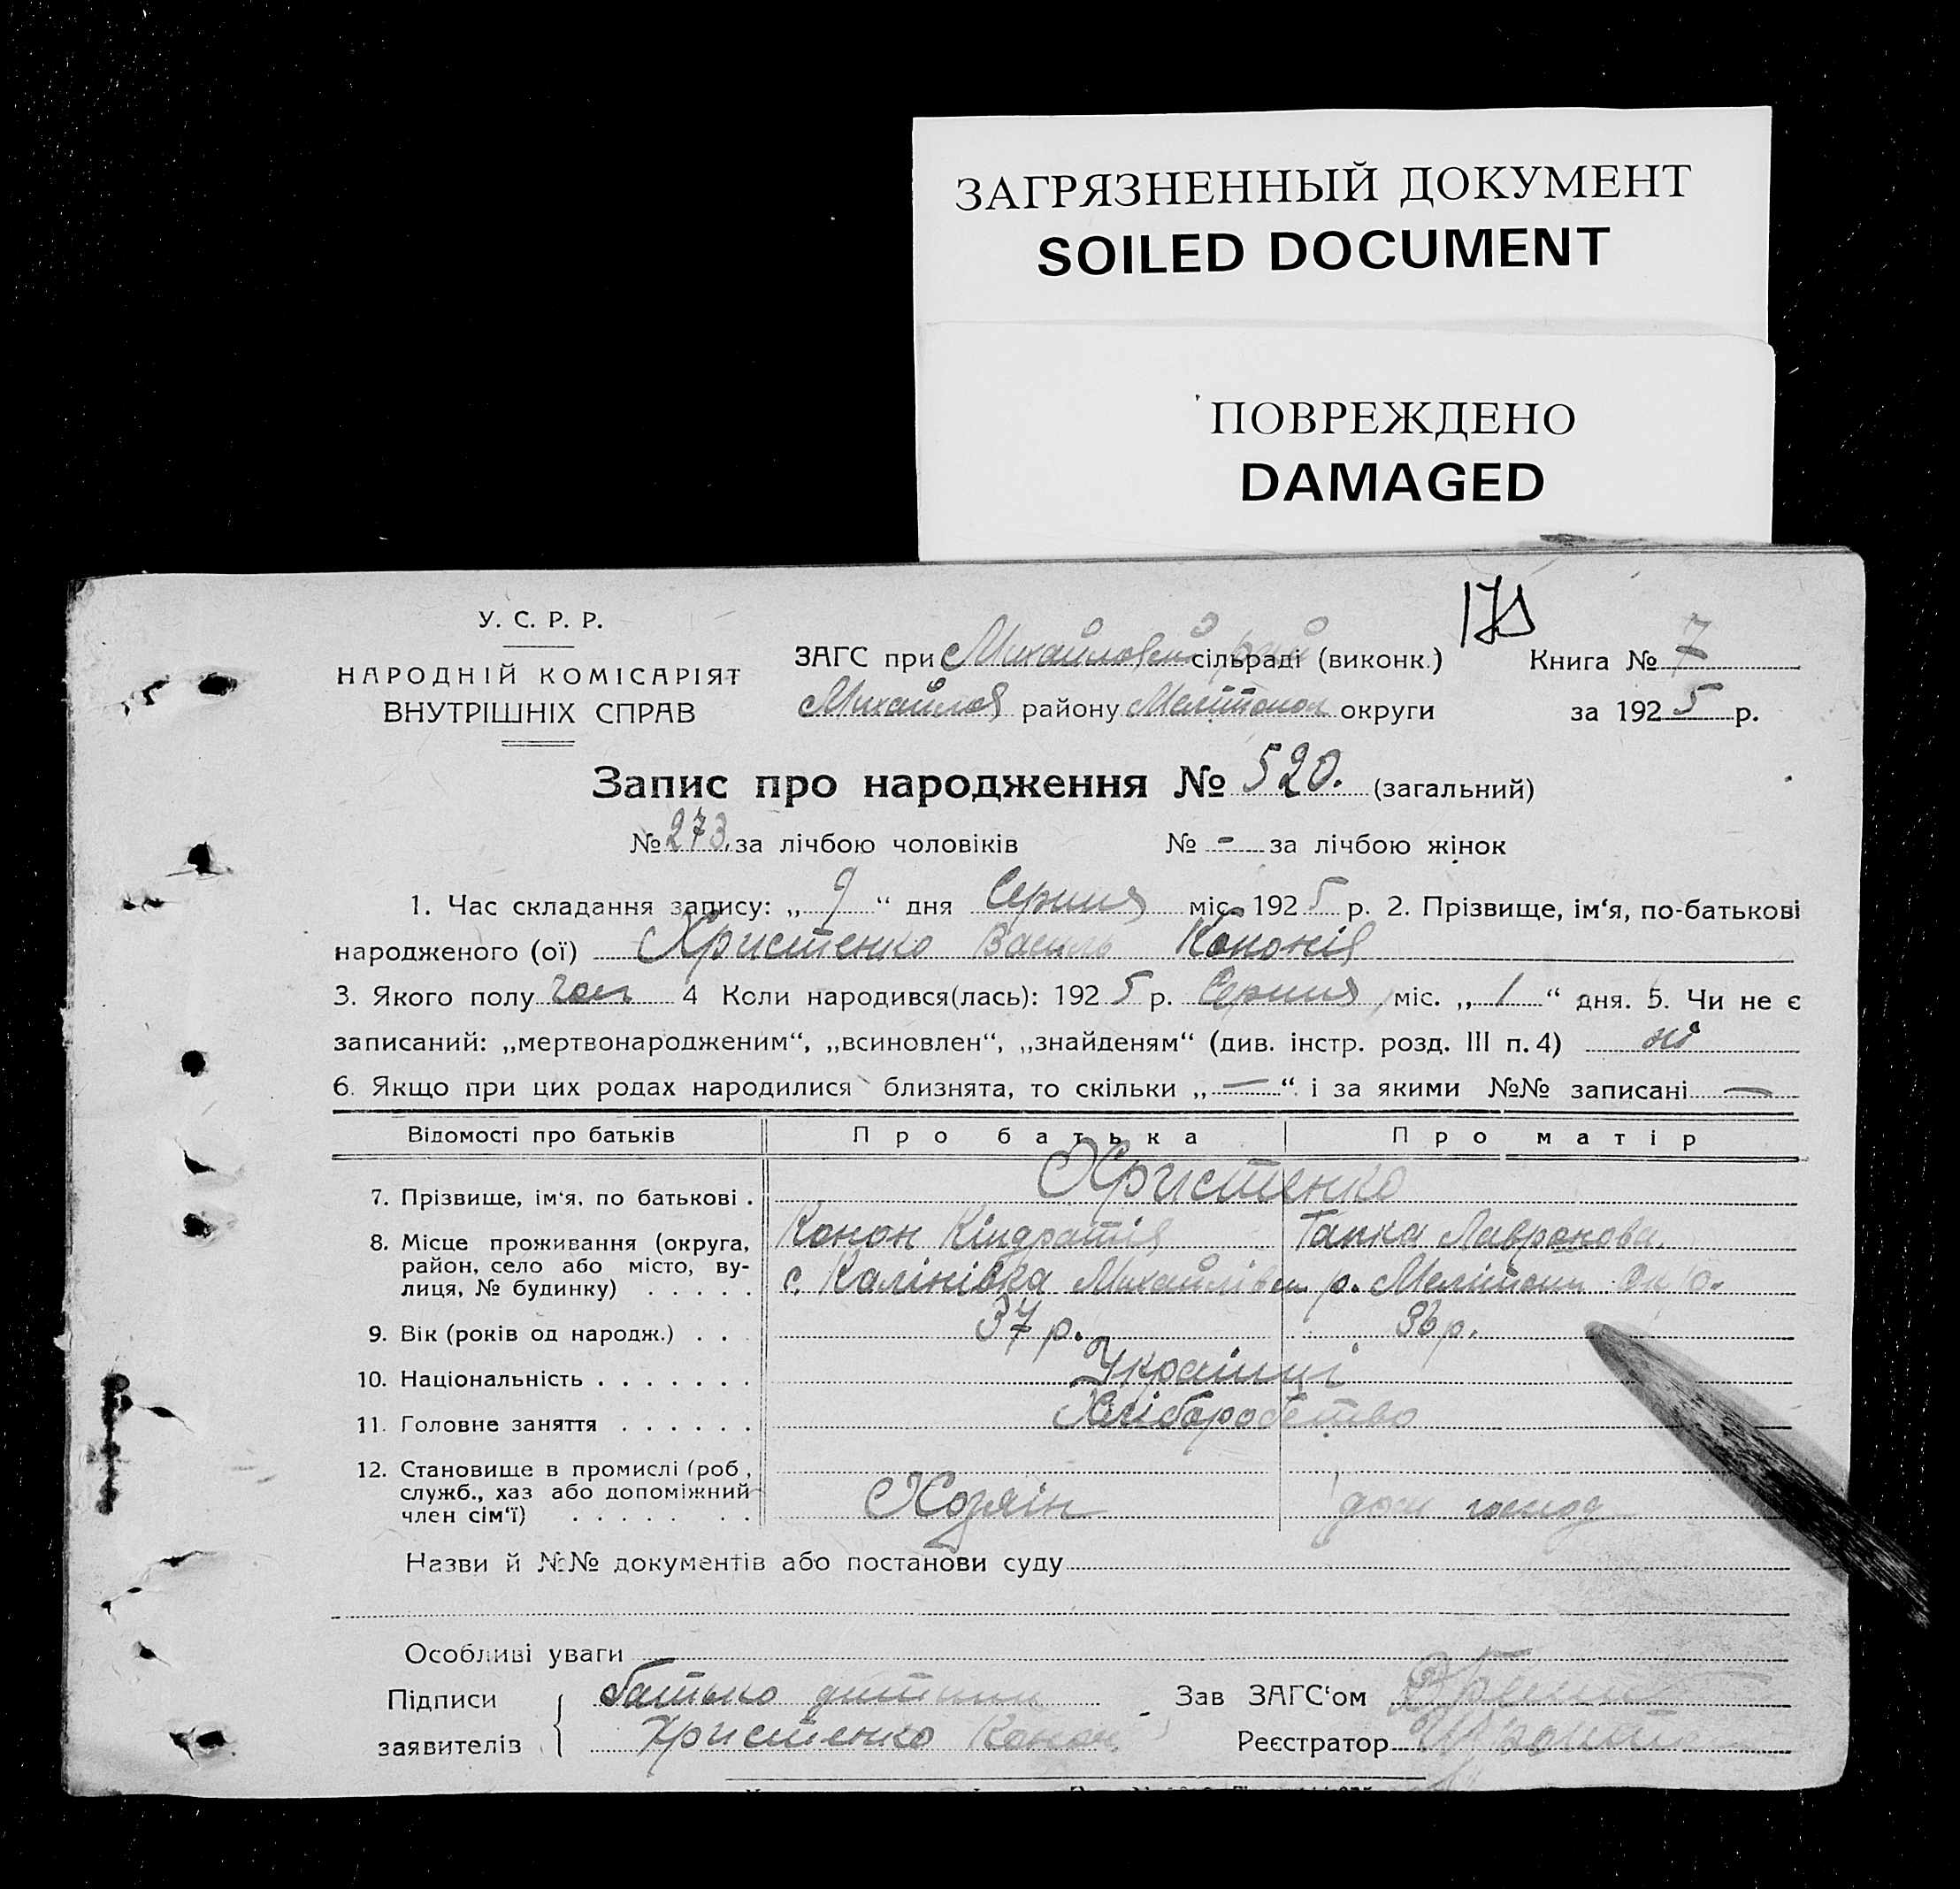 ЗАГРЯЗНЕННЫЙ ДОКУМЕНТ
SOILED DOCUMENT
ПОВРЕЖДЕНО
DAMAGED
У. С. Р. Р.
НАРОДНІЙ КОМІСАРІЯТ
ВНУТРІШНІХ СПРАВ
ЗАГС при сільраді (виконк.)
Книга № 7
Михайлов району Мелітопол округи
за 1925 р.
Запис про народження № 520. (загальний)
№ 273. за лічбою чоловіків № - за лічбою жінок
1. Час складання запису: „ 9 “ дня Серпня міс. 1925 р. 2. Прізвище, ім‘я, по-батькові
народженого (ої) Христенко Василь Кононів
3. Якого полу чол 4 Коли народився(лась): 1925 р. Серпня міс. „ 1 “ дня. 5. Чи не є
записаний: „мертвонародженим“, „всиновлен“, „знайденям“ (див. інстр. розд. III п. 4) ні
6. Якщо при цих родах народилися близнята, то скільки „ — “ і за якими №№ записані —
Відомості про батьків Про батька Про матір
Христенко
7. Прізвище, ім‘я, по батькові .
Конон Кіндратів Гапка Лавронова.
8. Місце проживання (округа,
район, село або місто, ву-
лиця, № будинку) . . . . .
с. Калінівка Михайлівськ р. Мелітоп Окр.
9. Вік (років од народж.) . . . 37 р. 36 р.
10. Національність . . . . . . . Українці
11. Головне заняття . . . . . . Хліборобство
12. Становище в промислі (роб.,
служб., хаз або допоміжний
член сім‘ї) . . . . . . .
Хозяін дом господ
Назви й №№ документів або постанови суду
Особливі уваги
Підписи батько дитини Зав ЗАГС‘ом
заявителів Христенко Конон. Реєстратор